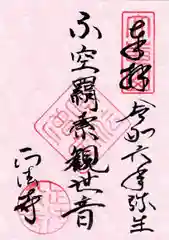 奉拝 令和六年弥生
不空羂索観世音
正法寺